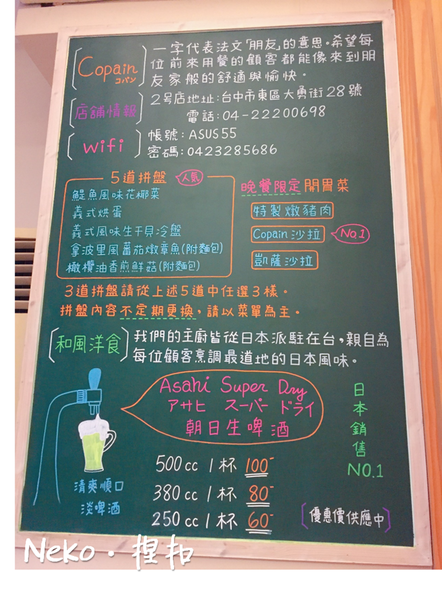 Copain
コパン
一字代表法文「朋友」的意思。希望每
位前來用餐的顧客都能像來到朋
友家般的舒適與愉快。
店舖情報
2號店地址:台中市東區大勇街28號
電話:04-22200698
wifi
帳號:ASUS55
密碼:0423285686
5道拼盤 人氣
鯷魚風味花椰菜
義式烘蛋
義式風味生干貝冷盤
拿波里風蕃茄燉章魚(附麵包)
橄欖油香煎鮮菇(附麵包)
晚餐限定 開胃菜
特製燉豬肉
Copain沙拉 No.1
凱薩沙拉
3道拼盤請從上述5道中任選3樣。
拼盤內容不定期更換,請以菜單為主。
和風洋食
我們的主廚皆從日本派駐在台,親自為
每位顧客烹調最道地的日本風味。
Asahi Super Dry
アサヒ スーパー ドライ
朝日生啤酒
日本銷售NO.1
清爽順口
淡啤酒
500cc 1杯 100-
380cc 1杯 80-
250cc 1杯 60-
優惠價供應中
Neko·捏扣